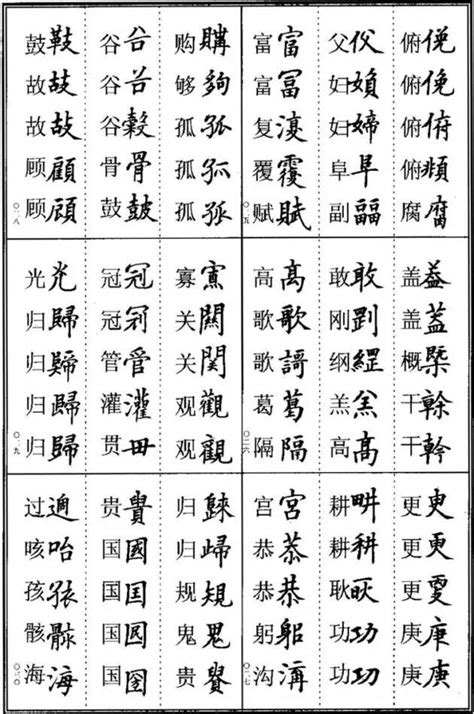 俯俛俯俛俯俯俯頫腐腐
父父妇媍妇婦阜阜副副
富富富冨复復覆覆赋賦
〇二五
盖益盖蓋概槩干榦干幹
敢敢刚剛纲綱羔羔高高
高高歌歌歌謌葛葛隔隔
〇二六
更更更更更更庚庚庚庚
耕畊耕耕耿耿功功功功
宫宮恭恭恭恭躬躳沟溝
〇二七
购購够夠孤孤孤孤孤孤
谷谷谷谷谷穀骨骨鼓皷
鼓鼓故故故故顾顧顾顧
〇二八
寡寡关關关関观觀观觀
冠冠冠冠管管灌灌贯毌
光光归歸归歸归歸归歸
〇二九
归歸归歸规規鬼鬼贵貴
贵貴国國国国国圀国圀
过過咳咍孩孩骸骸海海
〇三〇